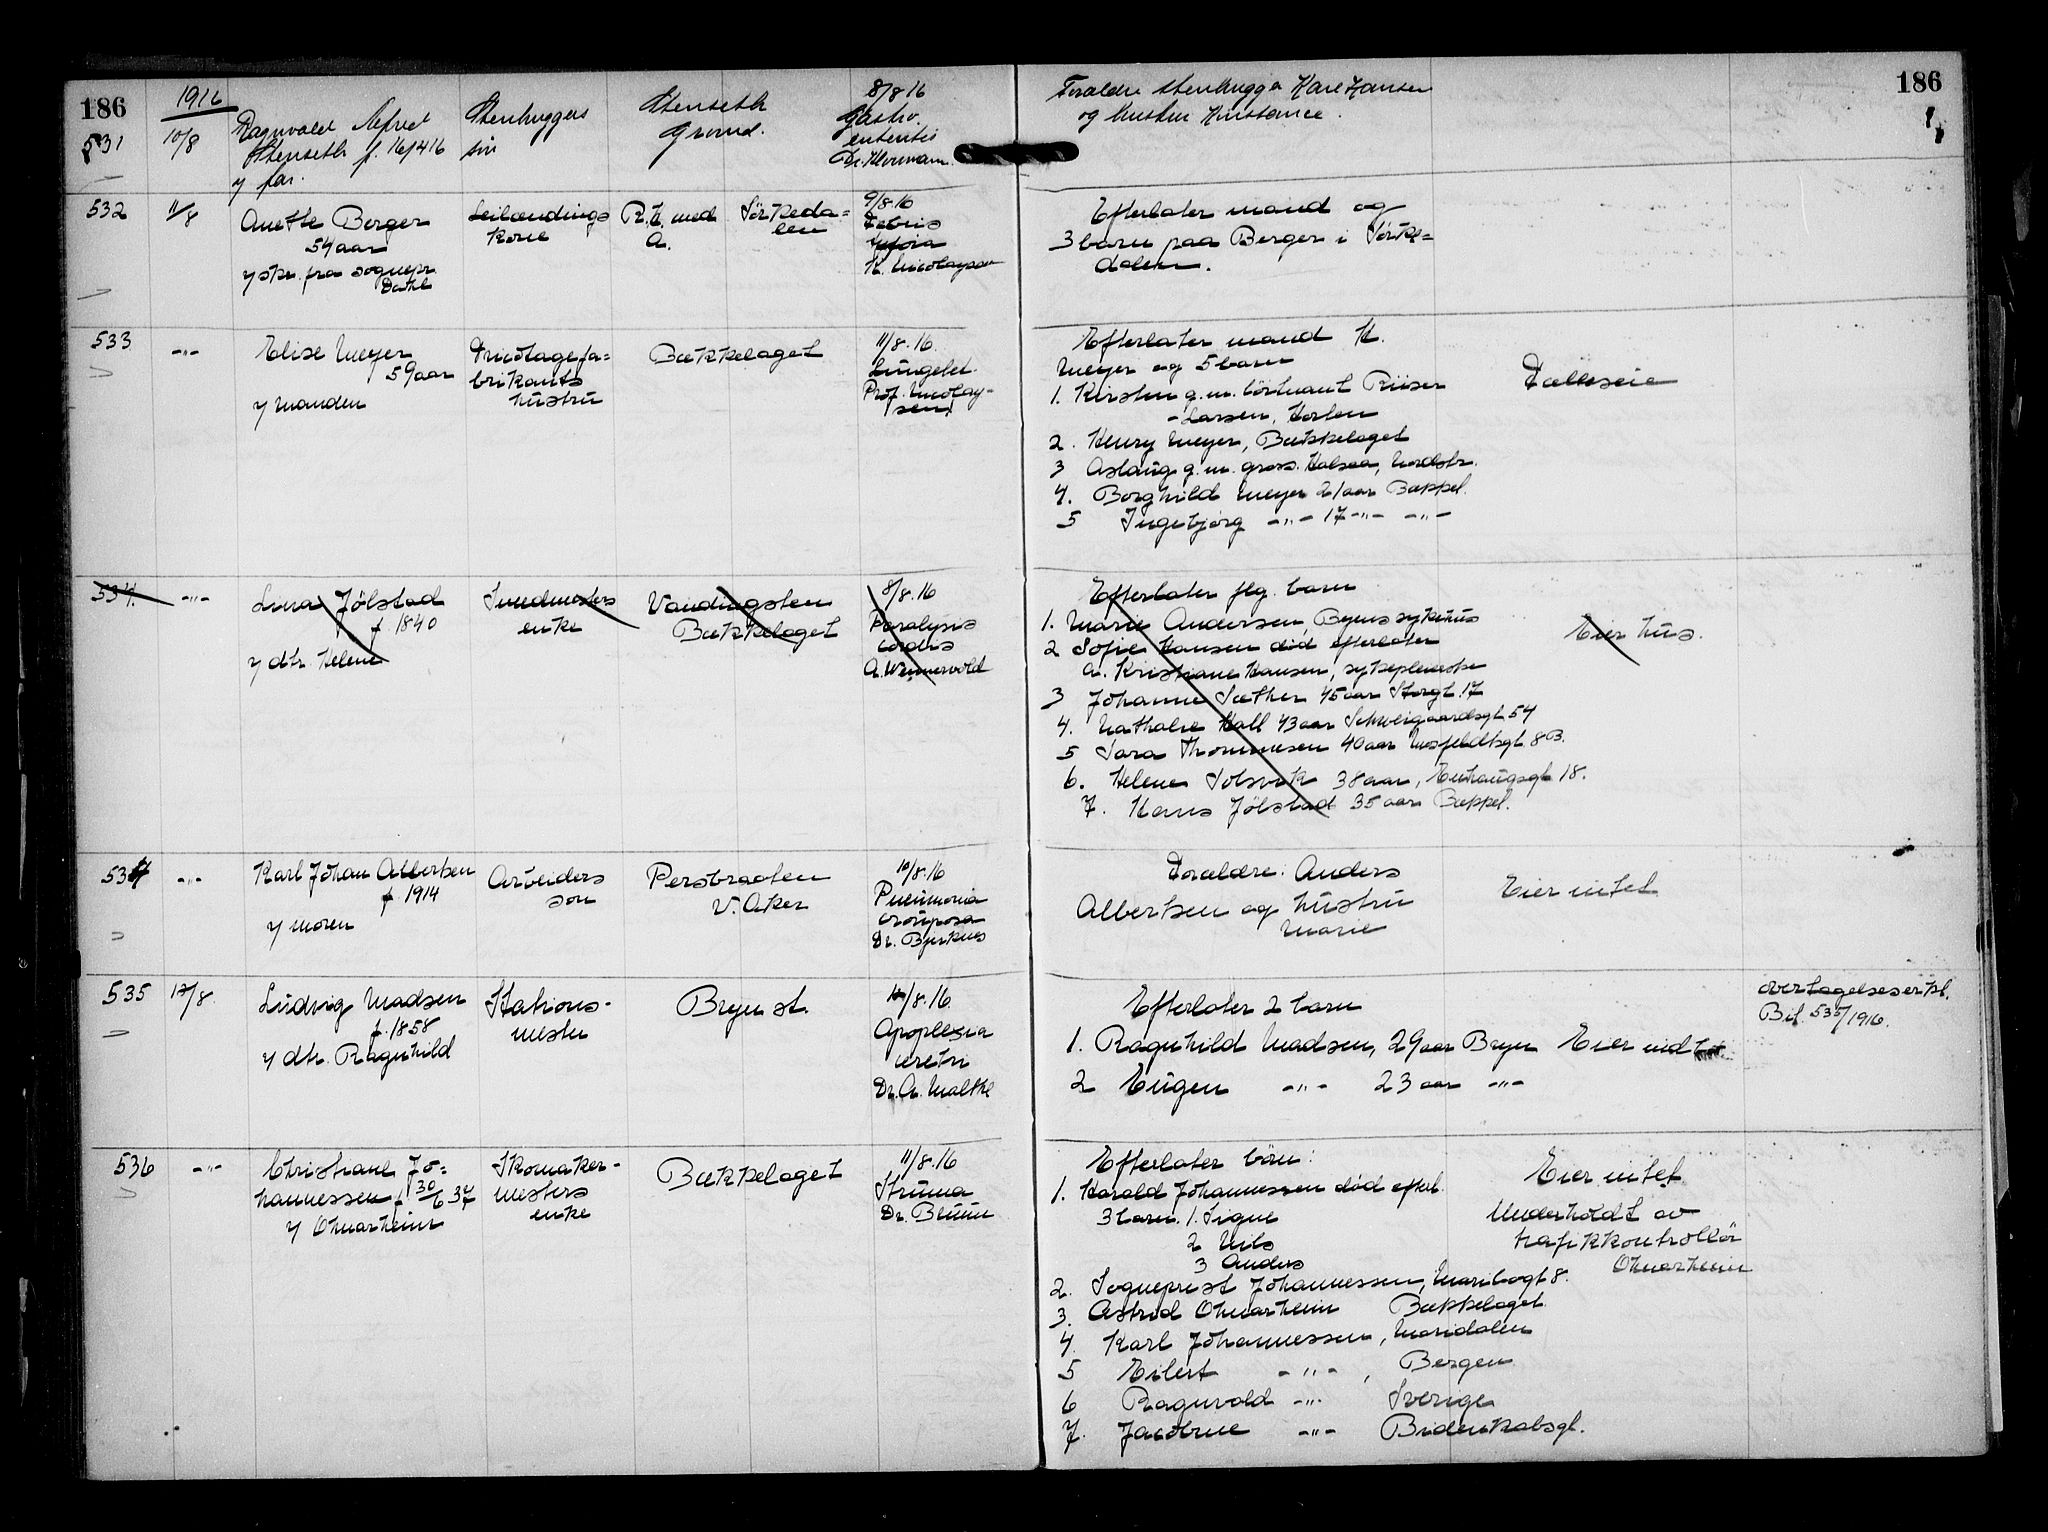 186
1916
186
531
10/8
Ragnvald Alfred
Stenseth f. 16/4 16
/ far.
Stenhuggers
søn
Stenseth
Grorud.
8/8 16
Gastro
enteritis
Dr.
Foraldre stenhugger Karl Hansen
og hustru Konstance.
532
11/8
Anethe Berger
54 aar
/ skr. fra sognepr.
Dahl
Leilændings
kone
R.H. med
A.
Sørkeda=
len
9/8.16
Febris
K. Nicolaysen
Efterlater mand og
3 barn paa Berger i Sørke=
dalen.
533
-"-
Elise Meyer
59 aar
/ manden
Tricotagefa=
brikants
hustru
Bækkelaget
11/8.16.
Lungebet.
Prof. Nicolay-
sen
Efterlater mand H.
Meyer og 5 barn
1. Kirsten g.m. löitnant Riiser
-Larsen, Horten
2. Henry Meyer, Bækkelaget
3 Aslaug g.m. gross. Halsaa, Nordstr.
4. Borghild Meyer 21 aar Bækkel.
5 Ingebjørg -"- 17 -"- -"-
Fælleseie
534.
-"-
Lina Jölstad
f. 1840
/ dtr. Helene
Smedmesters
enke
Vandingsten
Bækkelaget
8/8.16
Paralysis
cordis
A. Wennervold
Efterlater flg. barn
1. Marie Andersen, Byens sykehus
2 Sofie Hansen död efterlater
a. Kristiane Hansen, sykepleierske
3 Johanne Sæther 45 aar Storgt. 17
4. Nathalie Hall 43 aar Schweigaardsgt 54
5 Sara Thommesen 40 aar Neufeldtsgt. 8 B.
6. Helene Solsvik 38 aar, Enhaugsgt 18.
7. Hans Jölstad 35 aar Bækkel.
Eier hus.
534
-"-
Karl Johan Albertsen
f 1914
/ moren
Arbeiders
søn
Persbraaten
V. Aker
10/8.16
Pneumonia
crouposa
Dr. Bjerknes
Foraldre: Anders
Albertsen og hustru
Marie
Eier intet
535
12/8.
Ludvig Madsen
f. 1858
/ dtr. Ragnhild
Stations-
mester
Bryn st.
11/8.16
Apoplexia
cerebri
Dr. A. Malthe
Efterlater 2 barn
1. Ragnhild Madsen, 29 aar Bryn Eier indbo
2 Eugen -"- 23 aar -"-
overtagelseserkl.
Bil. 535/1916.
536
-"-
Christiane Jo=
hannessen f 30/6 37
/ Ohnarheim
Skomaker-
mesters
enke
Bækkelaget
11/8.16
Struma
Dr. Bruun
Efterlater børn:
1. Harald Johannessen död efterl.
3 barn. 1. Signe
2 Nils
3 Anders
2. Sogneprest Johannessen, Maribogt 8.
3. Astrid Ohnarheim Bækkelaget
4. Karl Johannessen, Maridalen
5 Eilert -"-, Bergen
6 Ragnvald -"- Sverige
7. Jacobine -"- Bidenkabsgt.
Eier intet
Underholdt av
trafikkontrollör
Ohnarheim